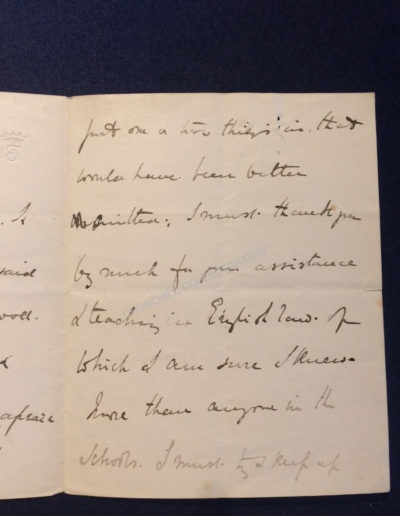 I
said
wood.
afraid
put one or two things in, that
would have been better
omitted; I must thank you
by much for your assistance
& teaching in English law. of
which I am sure I knew
more than anyone in the
Schools. I must try & keep up
CHURCHILLCOLLECTOR.COM